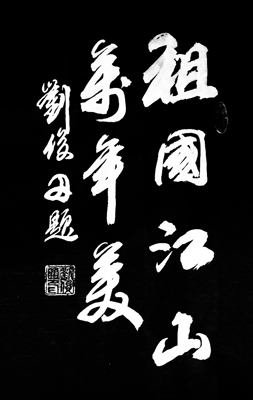 祖國江山
萬年美
劉俊題